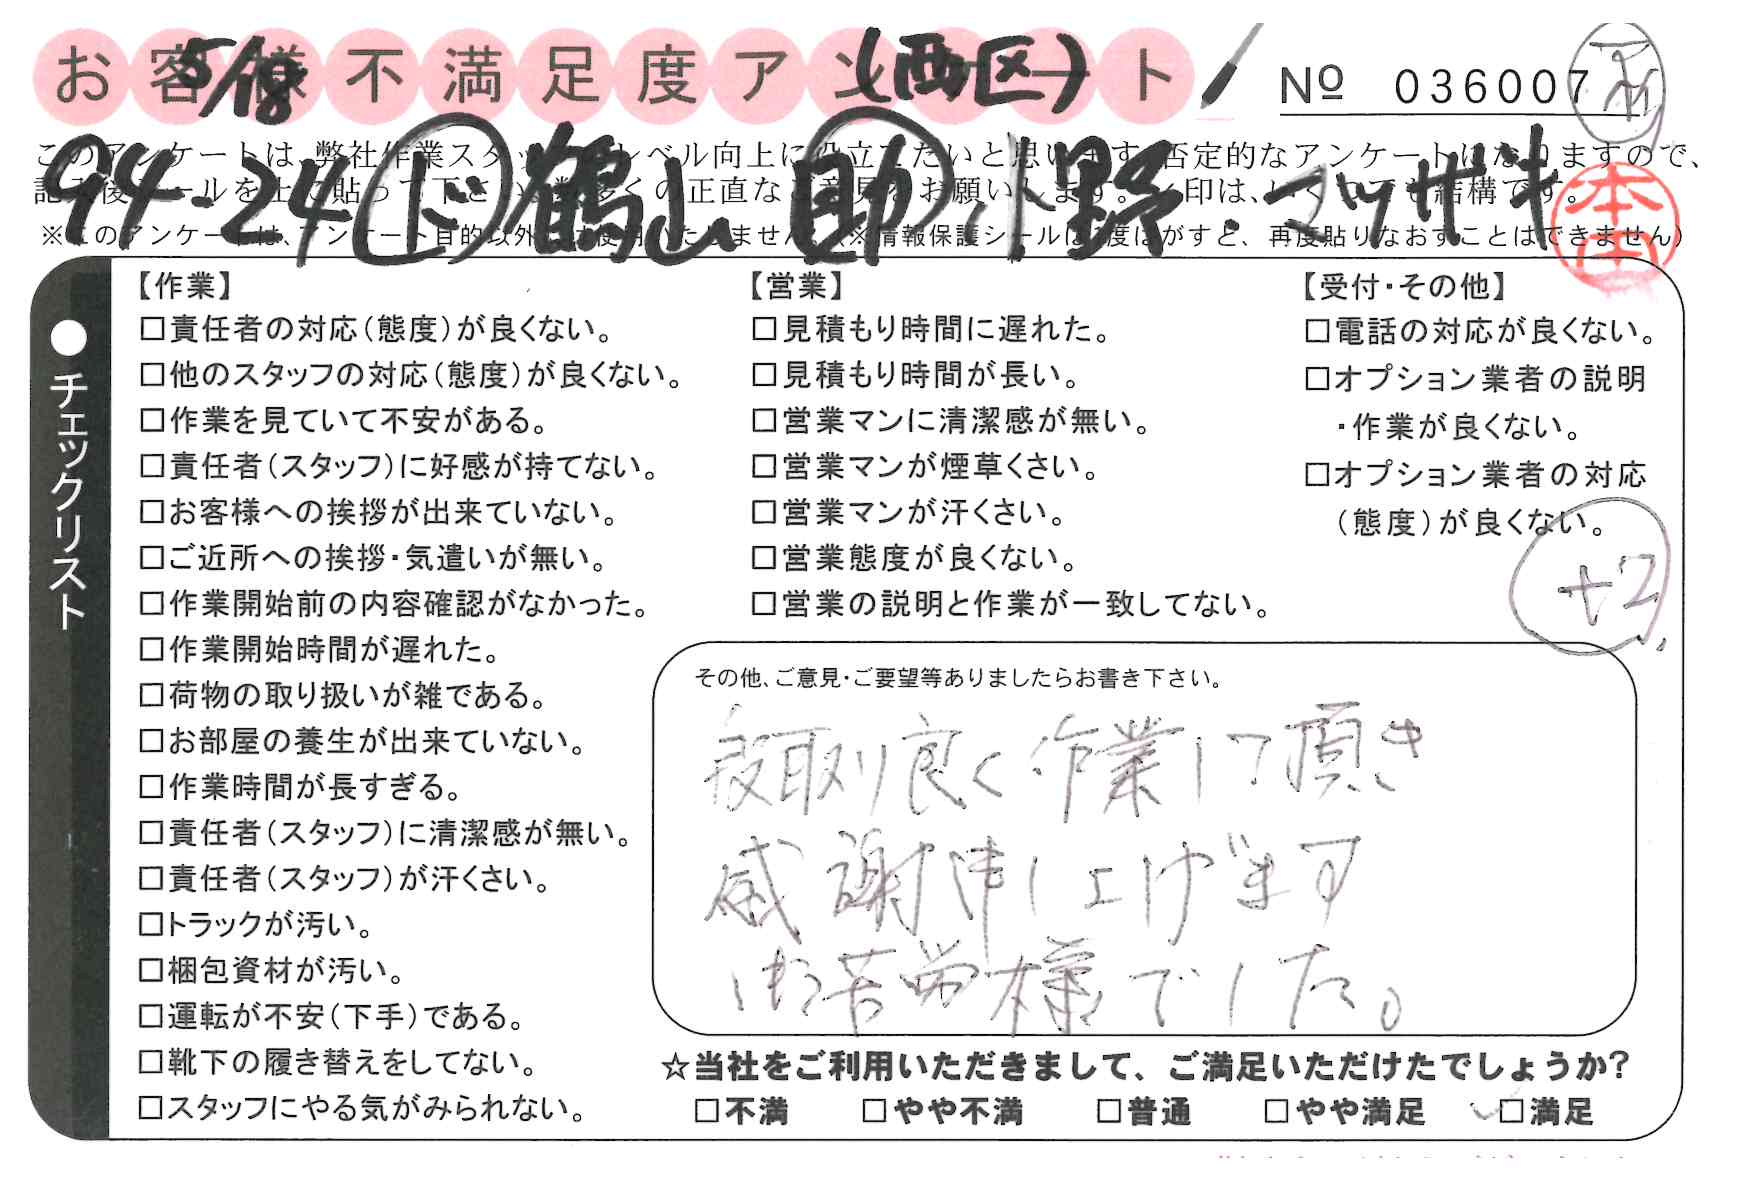 お客様不満足度アンケート
5/18
(西区)
No 036007
このアンケートは、弊社作業スタッフのレベル向上に役立てたいと思います。否定的なアンケートになりますので、
記入後シールを上に貼って下さい。数多くの正直なご意見をお願いします。レ印は、いくつでも結構です。
94-24 鶴山 助 小野・マツザキ
本田
※このアンケートは、アンケート目的以外には使用いたしません。(※情報保護シールは1度はがすと、再度貼りなおすことはできません)
●チェックリスト
【作業】
□責任者の対応(態度)が良くない。
□他のスタッフの対応(態度)が良くない。
□作業を見ていて不安がある。
□責任者(スタッフ)に好感が持てない。
□お客様への挨拶が出来ていない。
□ご近所への挨拶・気遣いが無い。
□作業開始前の内容確認がなかった。
□作業開始時間が遅れた。
□荷物の取り扱いが雑である。
□お部屋の養生が出来ていない。
□作業時間が長すぎる。
□責任者(スタッフ)に清潔感が無い。
□責任者(スタッフ)が汗くさい。
□トラックが汚い。
□梱包資材が汚い。
□運転が不安(下手)である。
□靴下の履き替えをしてない。
□スタッフにやる気がみられない。
【営業】
□見積もり時間に遅れた。
□見積もり時間が長い。
□営業マンに清潔感が無い。
□営業マンが煙草くさい。
□営業マンが汗くさい。
□営業態度が良くない。
□営業の説明と作業が一致してない。
【受付・その他】
□電話の対応が良くない。
□オプション業者の説明
・作業が良くない。
□オプション業者の対応
(態度)が良くない。
+2
その他、ご意見・ご要望等ありましたらお書き下さい。
段取り良く作業して頂き
感謝申し上げます
御苦労様でした。
☆当社をご利用いただきまして、ご満足いただけたでしょうか?
□不満 □やや不満 □普通 □やや満足 □満足